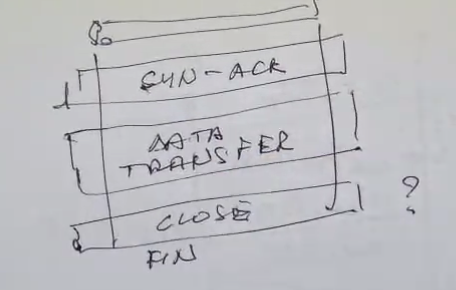 SYN-ACK
DATA
TRANSFER
CLOSE
?
FIN